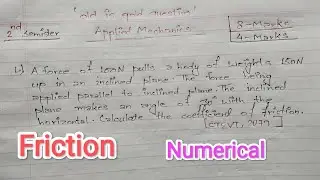 "old is gold question"
2nd semister Applied Mechanics
8-Marks
4-Marks
A force of 180N pulls a body of weights 150N
up in an inclined plane. The force being
applied parallel to inclined plane. The inclined
plane makes an angle of with the
horizontal. Calculate the coefficient of friction.
[CTEVT, 2079]
Friction Numerical